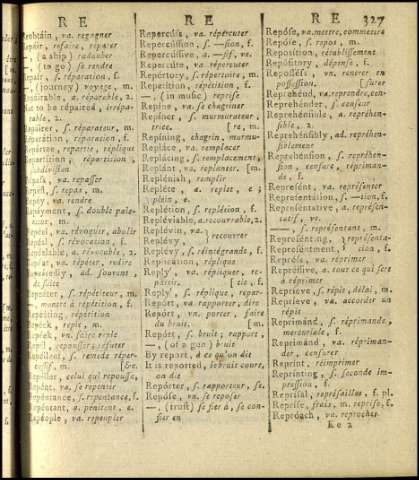 R E
R E
R E 327
Rebtáin, va. regagner
Repáir, refaire, réparer
—, (a ship) radouber
—, (to go) se rendre
Repáir, s. réparation, f.
—, (journey) voyage, m.
Repáirable, a. réparable, 2.
Not to be repáired, irréparable
Repáirer, s. réparateur, m.
Reparátion, réparation, f.
Repartée, repartie, réplique
Repartítion, répartition, subdivision
Repáss, va. repasser
Repást, s. repas, m.
Repáy, va. rendre
Repáyment, s. double paiement, m.
Repéal, va. révoquer, abolir
Repéal, s. révocation, f.
Repéalable, a. révocable, 2.
Repéat, va. répéter, redire
Repéatedly, ad. souvent, de suite
Repéater, s. répétiteur, m.
montre à répétition, f.
Repéating, répétition
Repéek, repic, m.
Repéek, vn. faire repic
Repél, repousser, réfuter
Repéllent, s. remede répercussif, m. [&c.
Repéller, celui qui repousse,
Repént, va. se repentir
Repéntance, s. repentance, f.
Repéntant, a. pénitent, e.
Repéople, va. repeupler
Repercúss, va. répercuter
Repercússion, s. —sion, f.
Repercússive, a. —sif, ve.
Repércute, va. répercuter
Répertory, s. répertoire, m.
Repetítion, répétition, f.
—, (in music) reprise
Repíne, va. se chagriner
Repíner, s. murmurateur, trice. [re, m.
Repíning, chagrin, murmu-
Repláce, va. remplacer
Replácing, s. remplacement,
Replánt, va. replanter. [m.
Replénish, remplir
Repléte, a. replet, e; plein, e.
Replétion, s. replétion, f.
Repléviable, a. recouvrable, 2.
Replévin, va.
Replévy } recouvrer
Replévy, s. réintégrande, f.
Replicátion, réplique
Replý, va. répliquer, repartir. [tie, f.
Replý, s. réplique, repar-
Repórt, va. rapporter, dire
Repórt, vn. porter, faire du bruit. [m.
Repórt, s. bruit; rapport
—, (of a gun) bruit
By report, à ce qu'on dit
It is reported, le bruit court, on dit
Repórter, s. rapporteur, se.
Repóse, va. se reposer
—, (trust) se fier à, se confier en
Repóse, va. mettre, commettre
Repóse, s. repos, m.
Reposítion, rétablissement
Repósitory, dépense, f.
Repossèss, vn. rentrer en possession. [surer
Reprehénd, va. reprendre, cen-
Reprehénder, s. censeur
Reprehénsible, a. répréhensible, 2.
Reprehénsibly, ad. repréhensiblement
Reprehénsion, s. repréhension, censure, réprimande, f.
Represént, va. représenter
Representátion, s. —tion, f.
Represéntative, a. représentatif, ve.
—, s. représentant, m.
Represénting, } représenta-
Represéntment, } tion, f.
Représs, va. réprimer
Représsive, a. tout ce qui sert à réprimer
Repríeve, s. répit, délai, m.
Repríeve, va. accorder un répit
Reprimánd, s. réprimande, mercuriale, f.
Reprimánd, va. réprimander, censurer
Reprínt, réimprimer
Reprínting, s. seconde impression, f.
Reprísal, représailles, f. pl.
Repríse, frais, m. reprise, f.
Repróach, va. reprocher
Ee 2